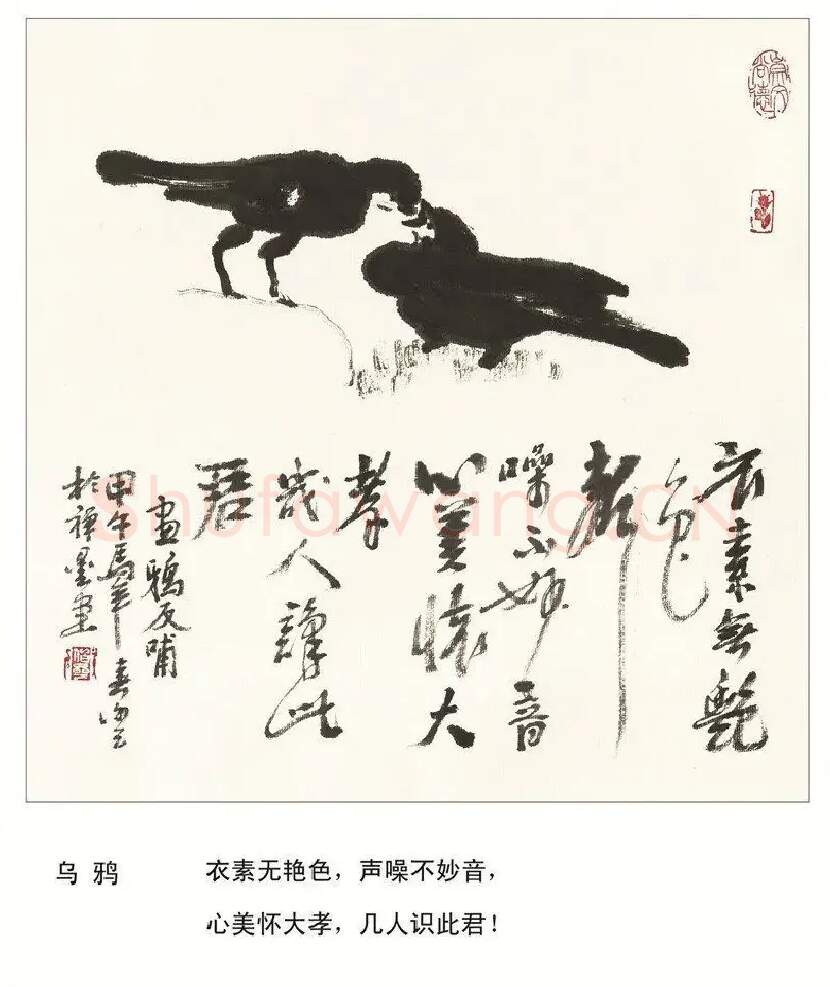 崇文尚德
衣素無艷
色
聲
噪不妙音
心美懷大
孝
幾人識此
君
畫鴉反哺
甲午馬年春
於禪墨堂
ShufaWang.CN
乌鸦
衣素无艳色，声噪不妙音，
心美怀大孝，几人识此君！